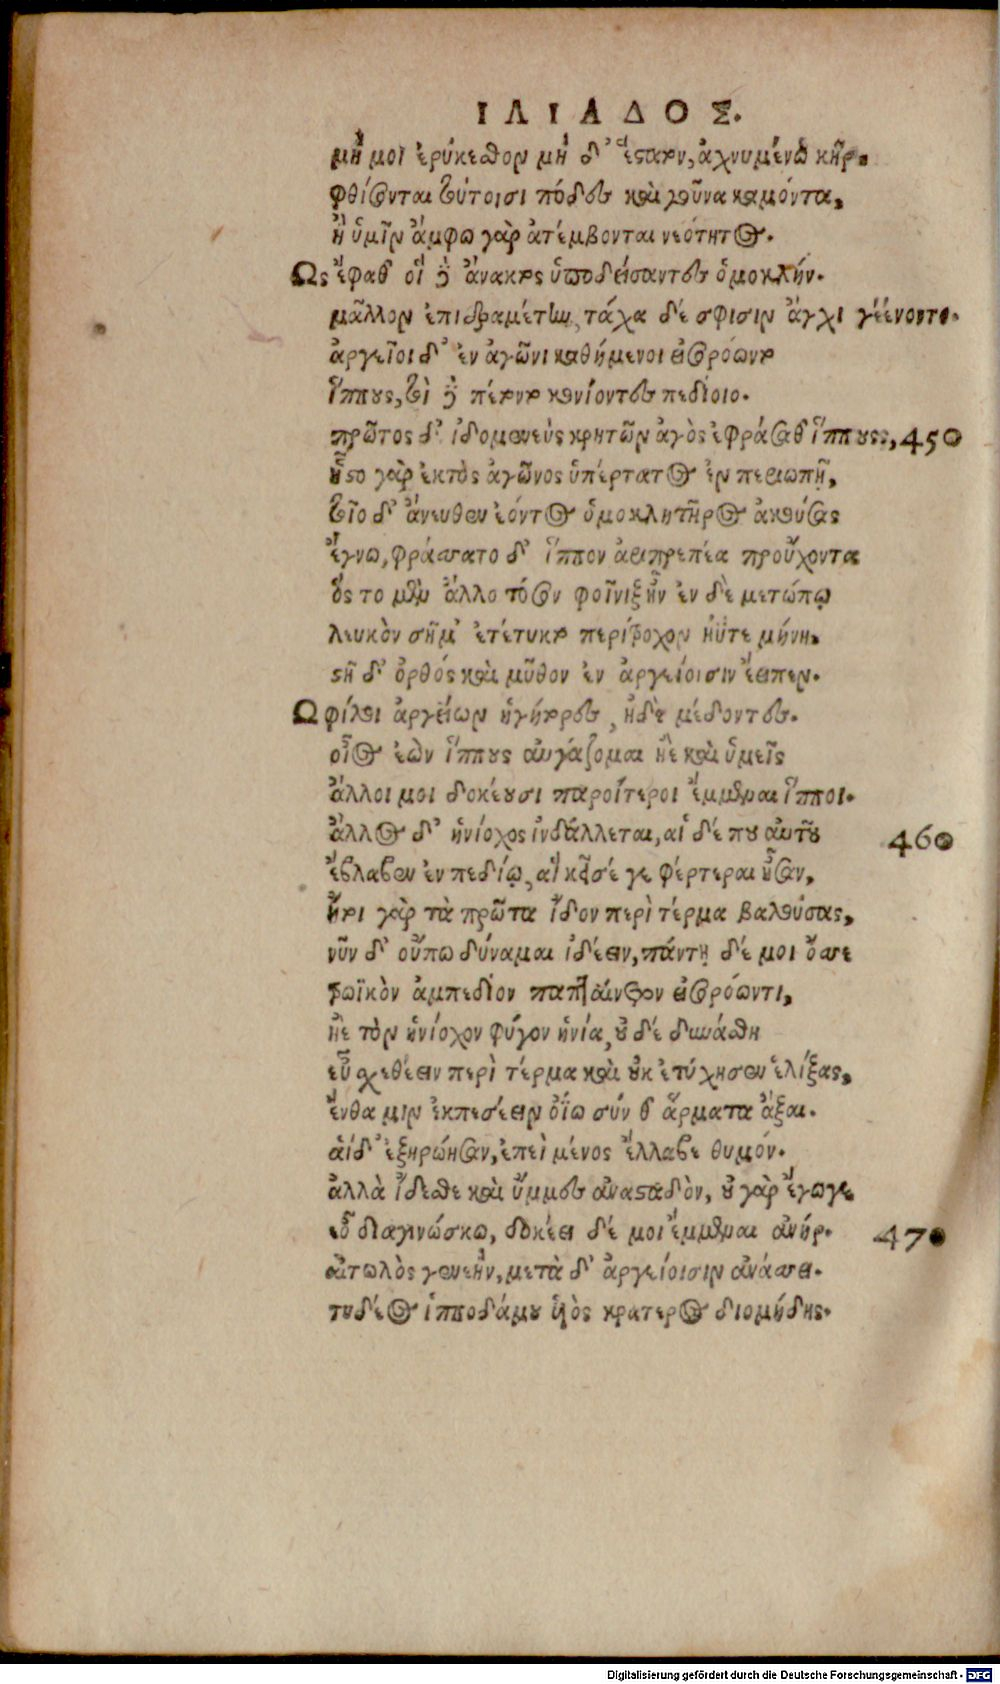 ΙΛΙΑΔΟΣ.
μή μοι ἐρύκεσθον μὴ δ' ἕστατον, ἀχνυμένω κῆρ.
φθήσονται τούτοισι πόδες καὶ γοῦνα καμόντα,
ἢ ὑμῖν ἄμφω γὰρ ἀτέμβονται νεότητος.
Ὣς ἔφαθ' οἱ δὲ ἄνακτος ὑποδείσαντες ὁμοκλήν.
μᾶλλον ἐπιδραμέτην, τάχα δέ σφισιν ἄγχι γένοντο.
ἀργεῖοι δ' ἐν ἀγῶνι καθήμενοι εἰσορόωντο
ἵππους, τοὶ δὲ πέτοντο κονίοντες πεδίοιο.
πρῶτος δ' ἰδομενεὺς κρητῶν ἀγὸς ἐφράσαθ' ἵππους, 450
ἧστο γὰρ ἐκτὸς ἀγῶνος ὑπέρτατος ἐν περιωπῇ,
τοῖο δ' ἄνευθεν ἐόντος ὁμοκλητῆρος ἀκούσας
ἔγνω, φράσσατο δ' ἵππον ἀειπρεπέα προὔχοντα
ὃς το μὲν ἄλλο τόσον φοῖνιξ ἦν ἐν δὲ μετώπῳ
λευκὸν σῆμ' ἐτέτυκτο περίτροχον ἠΰτε μήνη.
στῆ δ' ὀρθός καὶ μῦθον ἐν ἀργείοισιν ἔειπεν.
Ὦ φίλοι ἀργείων ἡγήτορες, ἠδὲ μέδοντες.
οἶος ἐὼν ἵππους αὐγάζομαι ἠὲ καὶ ὑμεῖς
ἄλλοι μοι δοκέουσι παροίτεροι ἔμμεναι ἵπποι.
ἄλλος δ' ἡνίοχος ἰνδάλλεται, αἱ δέ που αὐτοῦ 460
ἔβλαβεν ἐν πεδίῳ, αἳ κεῖσέ γε φέρτεραι ἦσαν,
ἤτοι γὰρ τὰ πρῶτα ἴδον περὶ τέρμα βαλούσας,
νῦν δ' οὔπω δύναμαι ἰδέειν, πάντη δέ μοι ὄσσε
τρωϊκὸν ἀμπεδίον παπταίνετον εἰσορόωντι,
ἠὲ τὸν ἡνίοχον φύγον ἡνία, οὐδέ δυνάσθη
εὖ σχεθέειν περὶ τέρμα καὶ οὐκ ἐτύχησεν ἑλίξας,
ἔνθα μιν ἐκπεσέειν ὀΐω σύν θ' ἅρματα ἄξαι.
αἱ δ' ἐξηρώησαν, ἐπεὶ μένος ἔλλαβε θυμόν.
ἀλλὰ ἴδεσθε καὶ ὔμμες ἀνασταδὸν, οὐ γὰρ ἔγωγε
εὖ διαγινώσκω, δοκέει δέ μοι ἔμμεναι ἀνήρ. 470
αἰτωλὸς γενεήν, μετὰ δ' ἀργείοισιν ἀνάσσει.
τυδέος ἱπποδάμου υἱὸς κρατερὸς διομήδης.
Digitalisierung gefördert durch die Deutsche Forschungsgemeinschaft - DFG